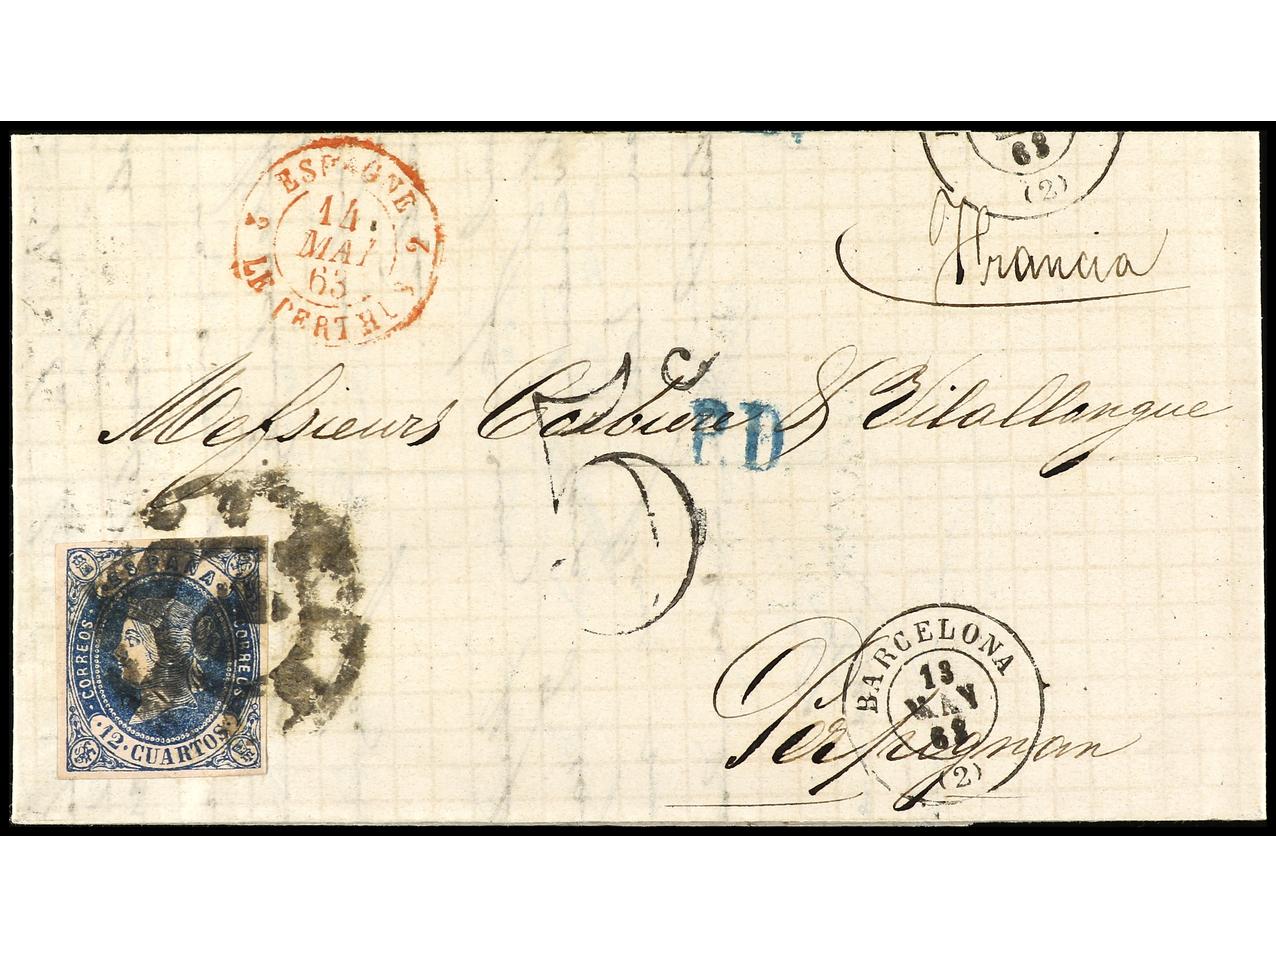 ESPAGNE
14
MAI
63
2 LE PERTHUS 2
68
(2)
Francia
5c
P.D.
Messieurs Corbière & Vilallongue
ESPAÑA
CORREOS
CORREOS
12 CUARTOS
BARCELONA
13
MAY
63
(2)
Perpignan